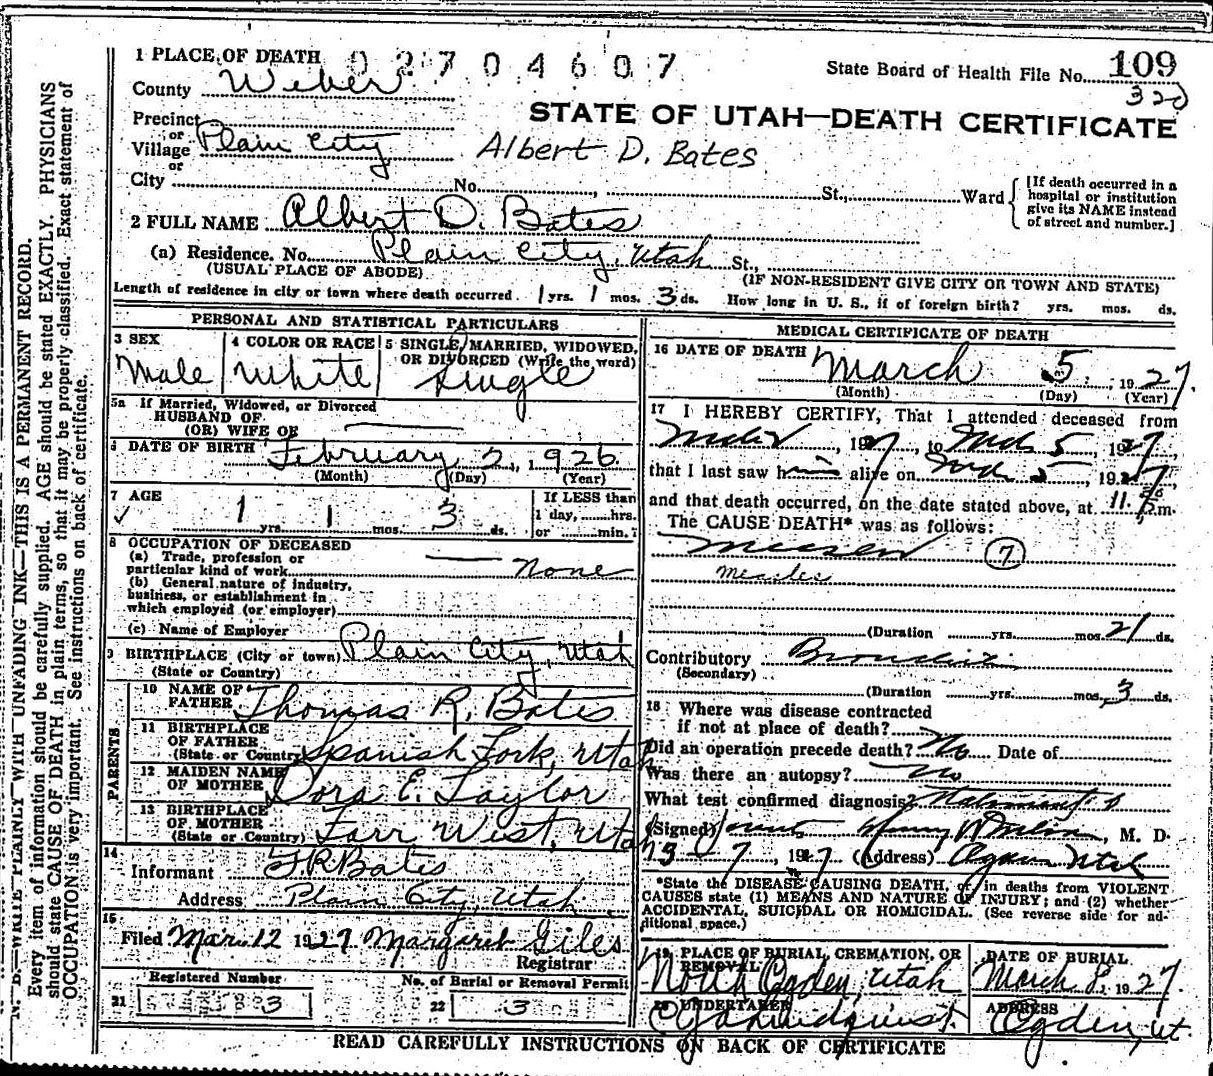 1 PLACE OF DEATH 02704607
State Board of Health File No. 109
County Weber
320
STATE OF UTAH—DEATH CERTIFICATE
Precinct
or
Village Plain City
Albert D. Bates
or
City No. , St., Ward
[If death occurred in a hospital or institution give its NAME instead of street and number.]
2 FULL NAME Albert D. Bates
(a) Residence. No. Plain City, Utah St.,
(USUAL PLACE OF ABODE) (IF NON-RESIDENT GIVE CITY OR TOWN AND STATE)
Length of residence in city or town where death occurred. 1 yrs. 1 mos. 3 ds. How long in U. S., if of foreign birth? yrs. mos. ds.
PERSONAL AND STATISTICAL PARTICULARS
3 SEX
Male
4 COLOR OR RACE
White
5 SINGLE, MARRIED, WIDOWED, OR DIVORCED (Write the word)
Single
5a If Married, Widowed, or Divorced
HUSBAND OF
(OR) WIFE OF
6 DATE OF BIRTH February 2, 1926
(Month) (Day) (Year)
7 AGE
1 yrs. 1 mos. 3 ds.
If LESS than
1 day, hrs.
or min.
8 OCCUPATION OF DECEASED
(a) Trade, profession or
particular kind of work None
(b) General nature of industry,
business, or establishment in
which employed (or employer)
(c) Name of Employer
9 BIRTHPLACE (City or town) Plain City, Utah
(State or Country)
PARENTS
10 NAME OF
FATHER Thomas R. Bates
11 BIRTHPLACE
OF FATHER
(State or Country) Spanish Fork, Utah
12 MAIDEN NAME
OF MOTHER Dora E. Taylor
13 BIRTHPLACE
OF MOTHER
(State or Country) Farr West, Utah
14
Informant T.R. Bates
Address Plain City, Utah
15
Filed Mar. 12 1927 Margaret Giles
Registrar
Registered Number No. of Burial or Removal Permit
21 3 22 3
MEDICAL CERTIFICATE OF DEATH
16 DATE OF DEATH March 5, 1927.
(Month) (Day) (Year)
17 I HEREBY CERTIFY, That I attended deceased from
1927, to Mch 5, 1927,
that I last saw him alive on Mch 5, 1927
and that death occurred, on the date stated above, at 11 m.
The CAUSE DEATH* was as follows:
7
measles
(Duration yrs. mos. 21 ds.
Contributory
(Secondary)
(Duration yrs. mos. 3 ds.
18 Where was disease contracted
if not at place of death?
Did an operation precede death? No Date of
Was there an autopsy? No
What test confirmed diagnosis?
(Signed) , M. D.
7, 1927 (Address) Ogden Utah
*State the DISEASE CAUSING DEATH, or in deaths from VIOLENT
CAUSES state (1) MEANS AND NATURE OF INJURY; and (2) whether
ACCIDENTAL, SUICIDAL OR HOMICIDAL. (See reverse side for additional space.)
19 PLACE OF BURIAL, CREMATION, OR
REMOVAL
North Ogden, Utah
DATE OF BURIAL
March 8, 1927.
20 UNDERTAKER
ADDRESS
Ogden, Ut.
READ CAREFULLY INSTRUCTIONS ON BACK OF CERTIFICATE
N. B.—WRITE PLAINLY WITH UNFADING INK—THIS IS A PERMANENT RECORD.
Every item of information should be carefully supplied. AGE should be stated EXACTLY. PHYSICIANS
should state CAUSE OF DEATH in plain terms, so that it may be properly classified. Exact statement of
OCCUPATION is very important. See instructions on back of certificate.